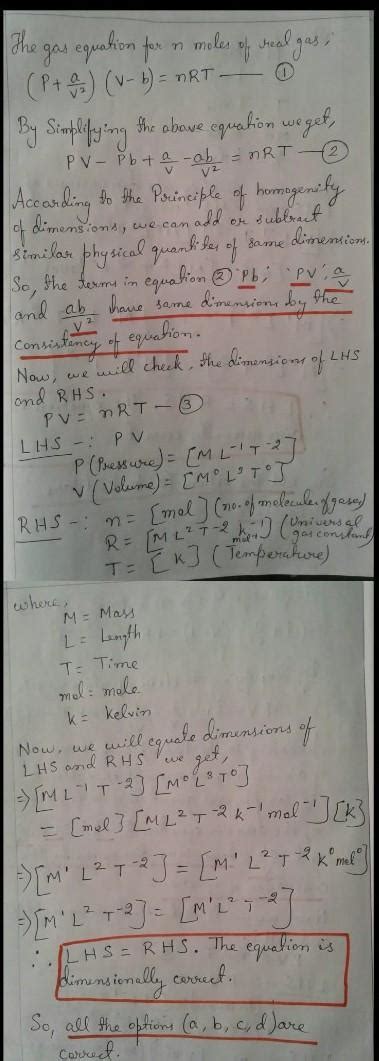 The gas equation for n moles of real gas;
(P + a/V²) (V-b) = nRT — ①
By Simplifying the above equation we get,
PV - Pb + a/V - ab/V² = nRT — ②
According to the Principle of homogenity
of dimensions, we can add or subtract
similar physical quantites of same dimensions.
So, the terms in equation ② 'Pb', 'PV', a/V
and ab/V² have same dimensions by the
consistency of equation.
Now, we will check, the dimensions of LHS
and RHS.
PV = nRT — ③
LHS -: PV
P (Pressure) = [M L⁻¹ T⁻²]
V (Volume) = [M⁰ L³ T⁰]
RHS -: n = [mol] (no. of molecules of gases)
R = [M L² T⁻² k⁻¹ mol⁻¹] (Universal gas constant)
T = [k] (Temperature)
where,
M = Mass
L = Length
T = Time
mol = mole
k = Kelvin
Now, we will equate dimensions of
LHS and RHS we get,
⇒ [M L⁻¹ T⁻²] [M⁰ L³ T⁰]
= [mol] [M L² T⁻² k⁻¹ mol⁻¹] [k]
⇒ [M¹ L² T⁻²] = [M¹ L² T⁻² k⁰ mol⁰]
⇒ [M¹ L² T⁻²] = [M¹ L² T⁻²]
∴ LHS = RHS. The equation is
dimensionally correct.
So, all the options (a, b, c, d) are
correct.